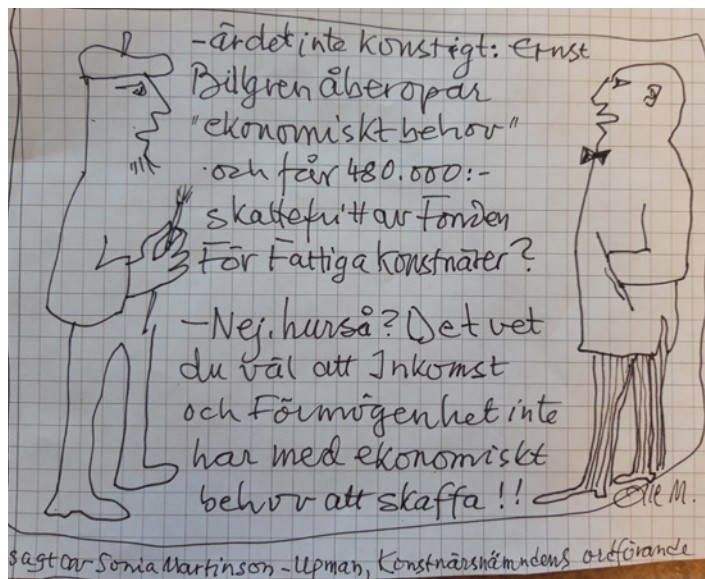 -ärdet inte konstigt: Ernst
Billgren åberopar
"ekonomiskt behov"
och får 480.000:-
skattefritt av Fonden
För Fattiga konstnärer?
-Nej, hurså? Det vet
du väl att Inkomst
och Förmögenhet inte
har med ekonomiskt
behov att skaffa!!
Olle M.
sagt av Sonia Martinson-Upman, Konstnärsnämndens ordförande